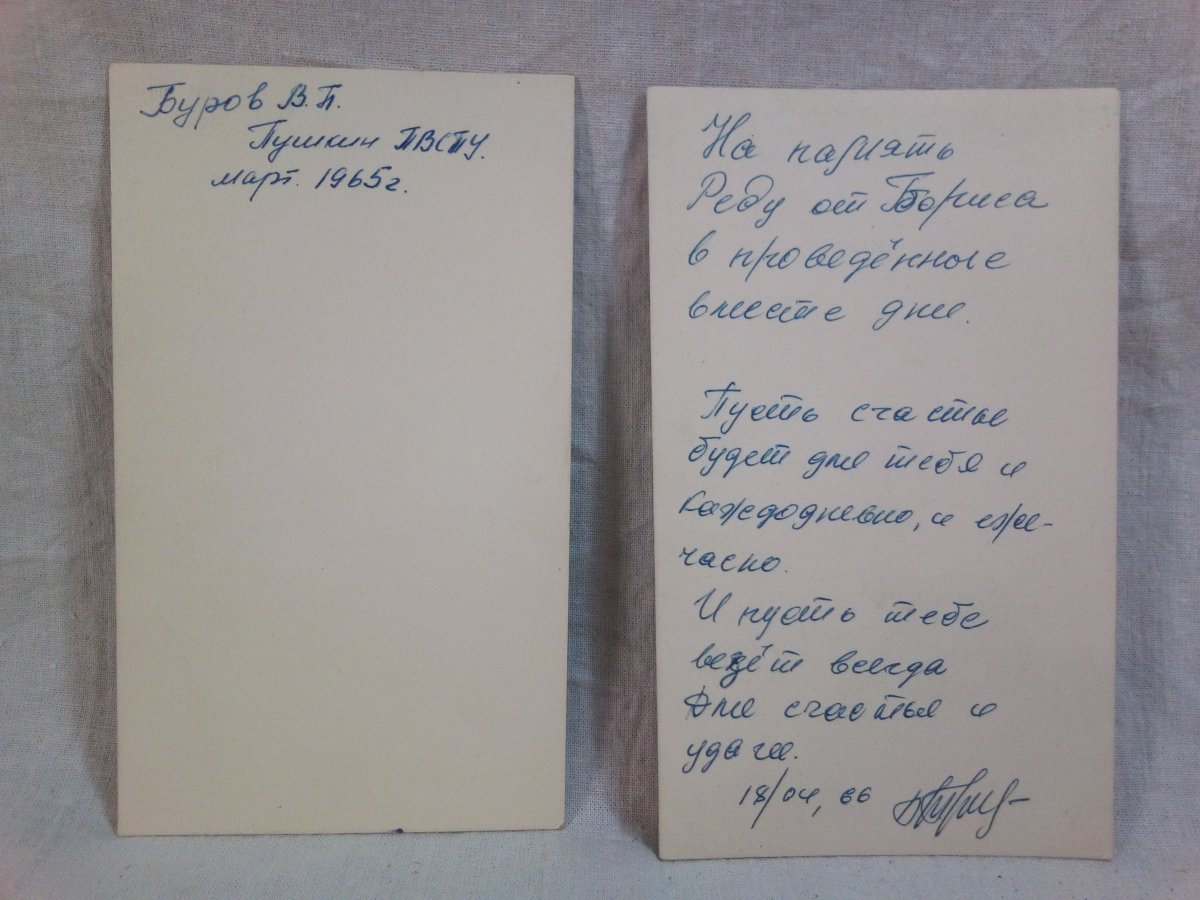 Буров В.П.
Пушкин ПВСТУ.
март. 1965г.
На память
Реду от Бориса
в проведённые
вместе дни.
Пусть счастье
будет для тебя и
каждодневно, и еже-
часно.
И пусть тебе
везёт всегда
Для счастья и
удачи.
18/04, 66